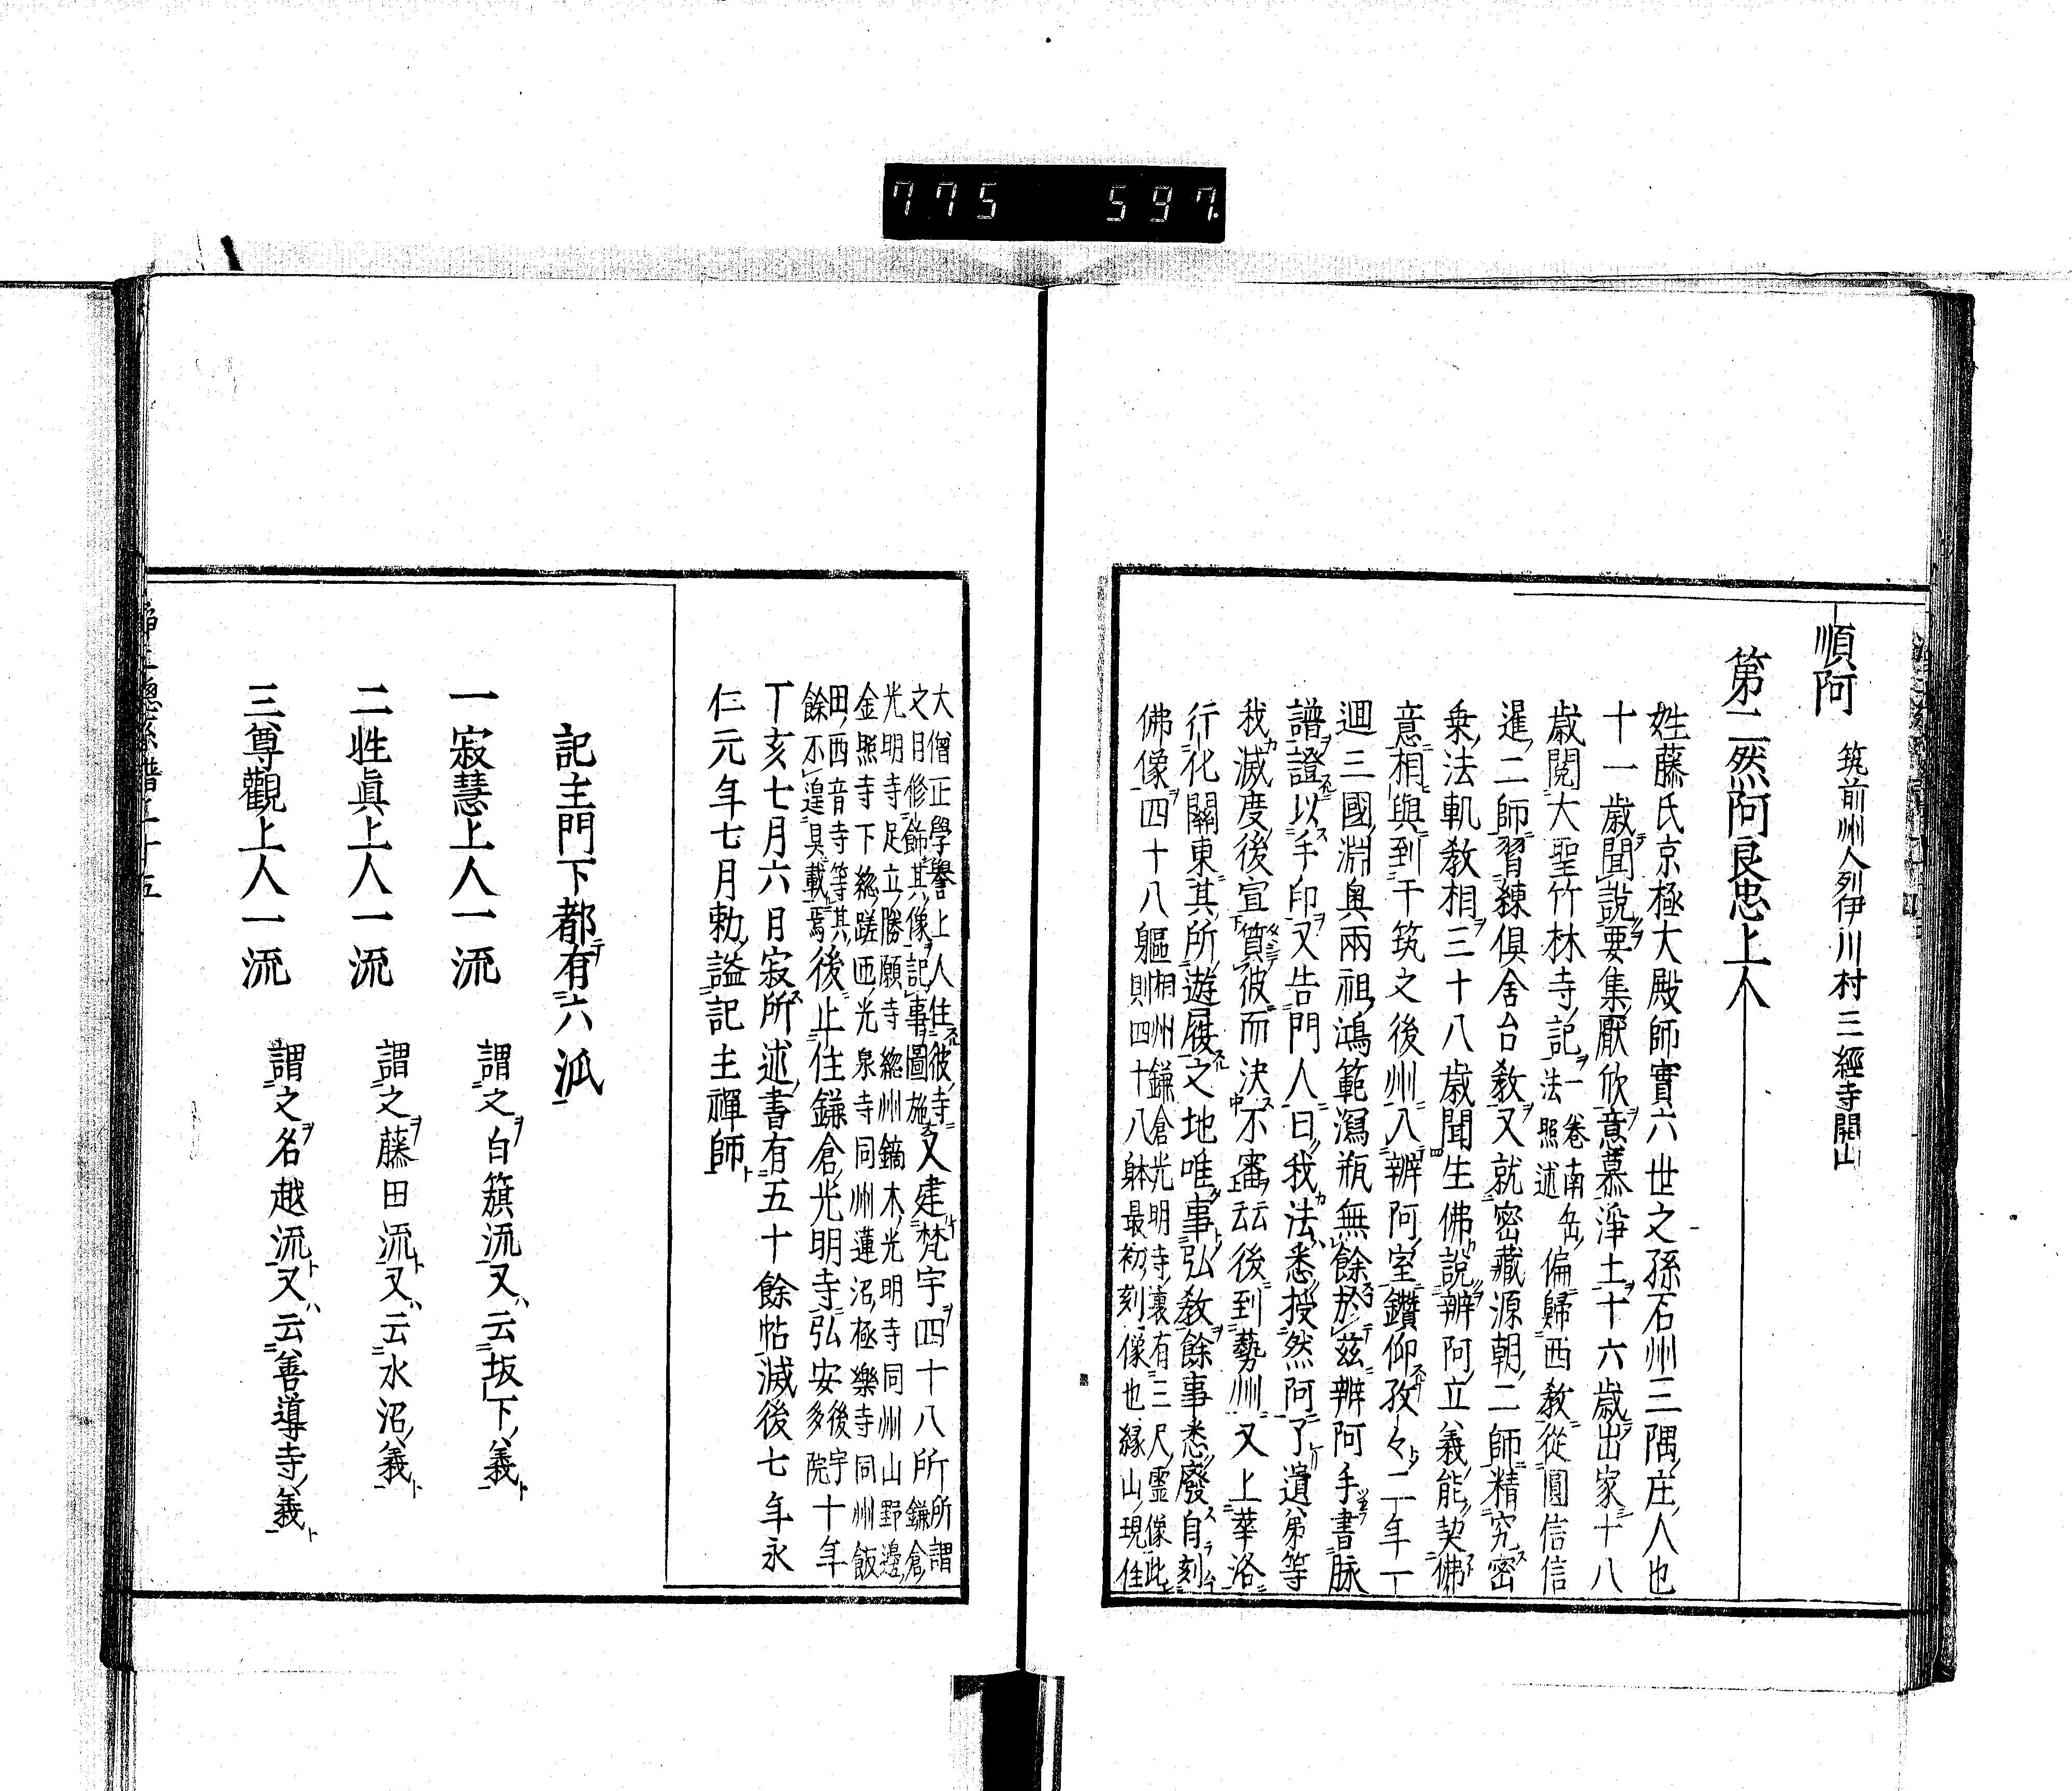 775 597.
順阿 筑前州人列伊川村三經寺開山
第二然阿良忠上人
姓藤氏京極大殿師實六世之孫石州三隅庄人也
十一歳聞說要集厭欣意慕淨土十六歳出家十八
歳閱大聖竹林寺記一卷南岳法照述偏歸西教從圓信信
暹二師習練俱舍台教又就密藏源朝二師精究密
乗法軌教相三十八歳聞生佛說辨阿立義能契佛
意相與到干筑之後州入辨阿室鑽仰孜々二年一
週三國淵奥兩祖鴻範瀉瓶無餘於茲辨阿手書脉
譜證以手印又告門人曰我法悉授然阿了遺弟等
我滅度後宜質彼而決不審云云後到藝州又上華洛
行化關東其所遊履之地唯事弘教餘事悉廢自刻
佛像四十八軀相州鎌倉光明寺壤有三尺靈像此則四十八躰最初刻像也縁山現住
大僧正學譽上人住彼寺之日修飾其像記事圖施又建梵宇四十八所所謂鎌倉
光明寺足立勝願寺總州鏑木光明寺同州山野邊
金照寺下總蹉匝光泉寺同州蓮沼極樂寺同州飯
田西音寺等其餘不遑具載焉後止住鎌倉光明寺弘安後宇多院十年
丁亥七月六日寂所述書有五十餘帖滅後七年永
仁元年七月勅謚記主禪師
記主門下都有六派
一寂慧上人一流 謂之白籏流又云坂下義
二性眞上人一流 謂之藤田流又云水沼義
三尊觀上人一流 謂之名越流又云善導寺義